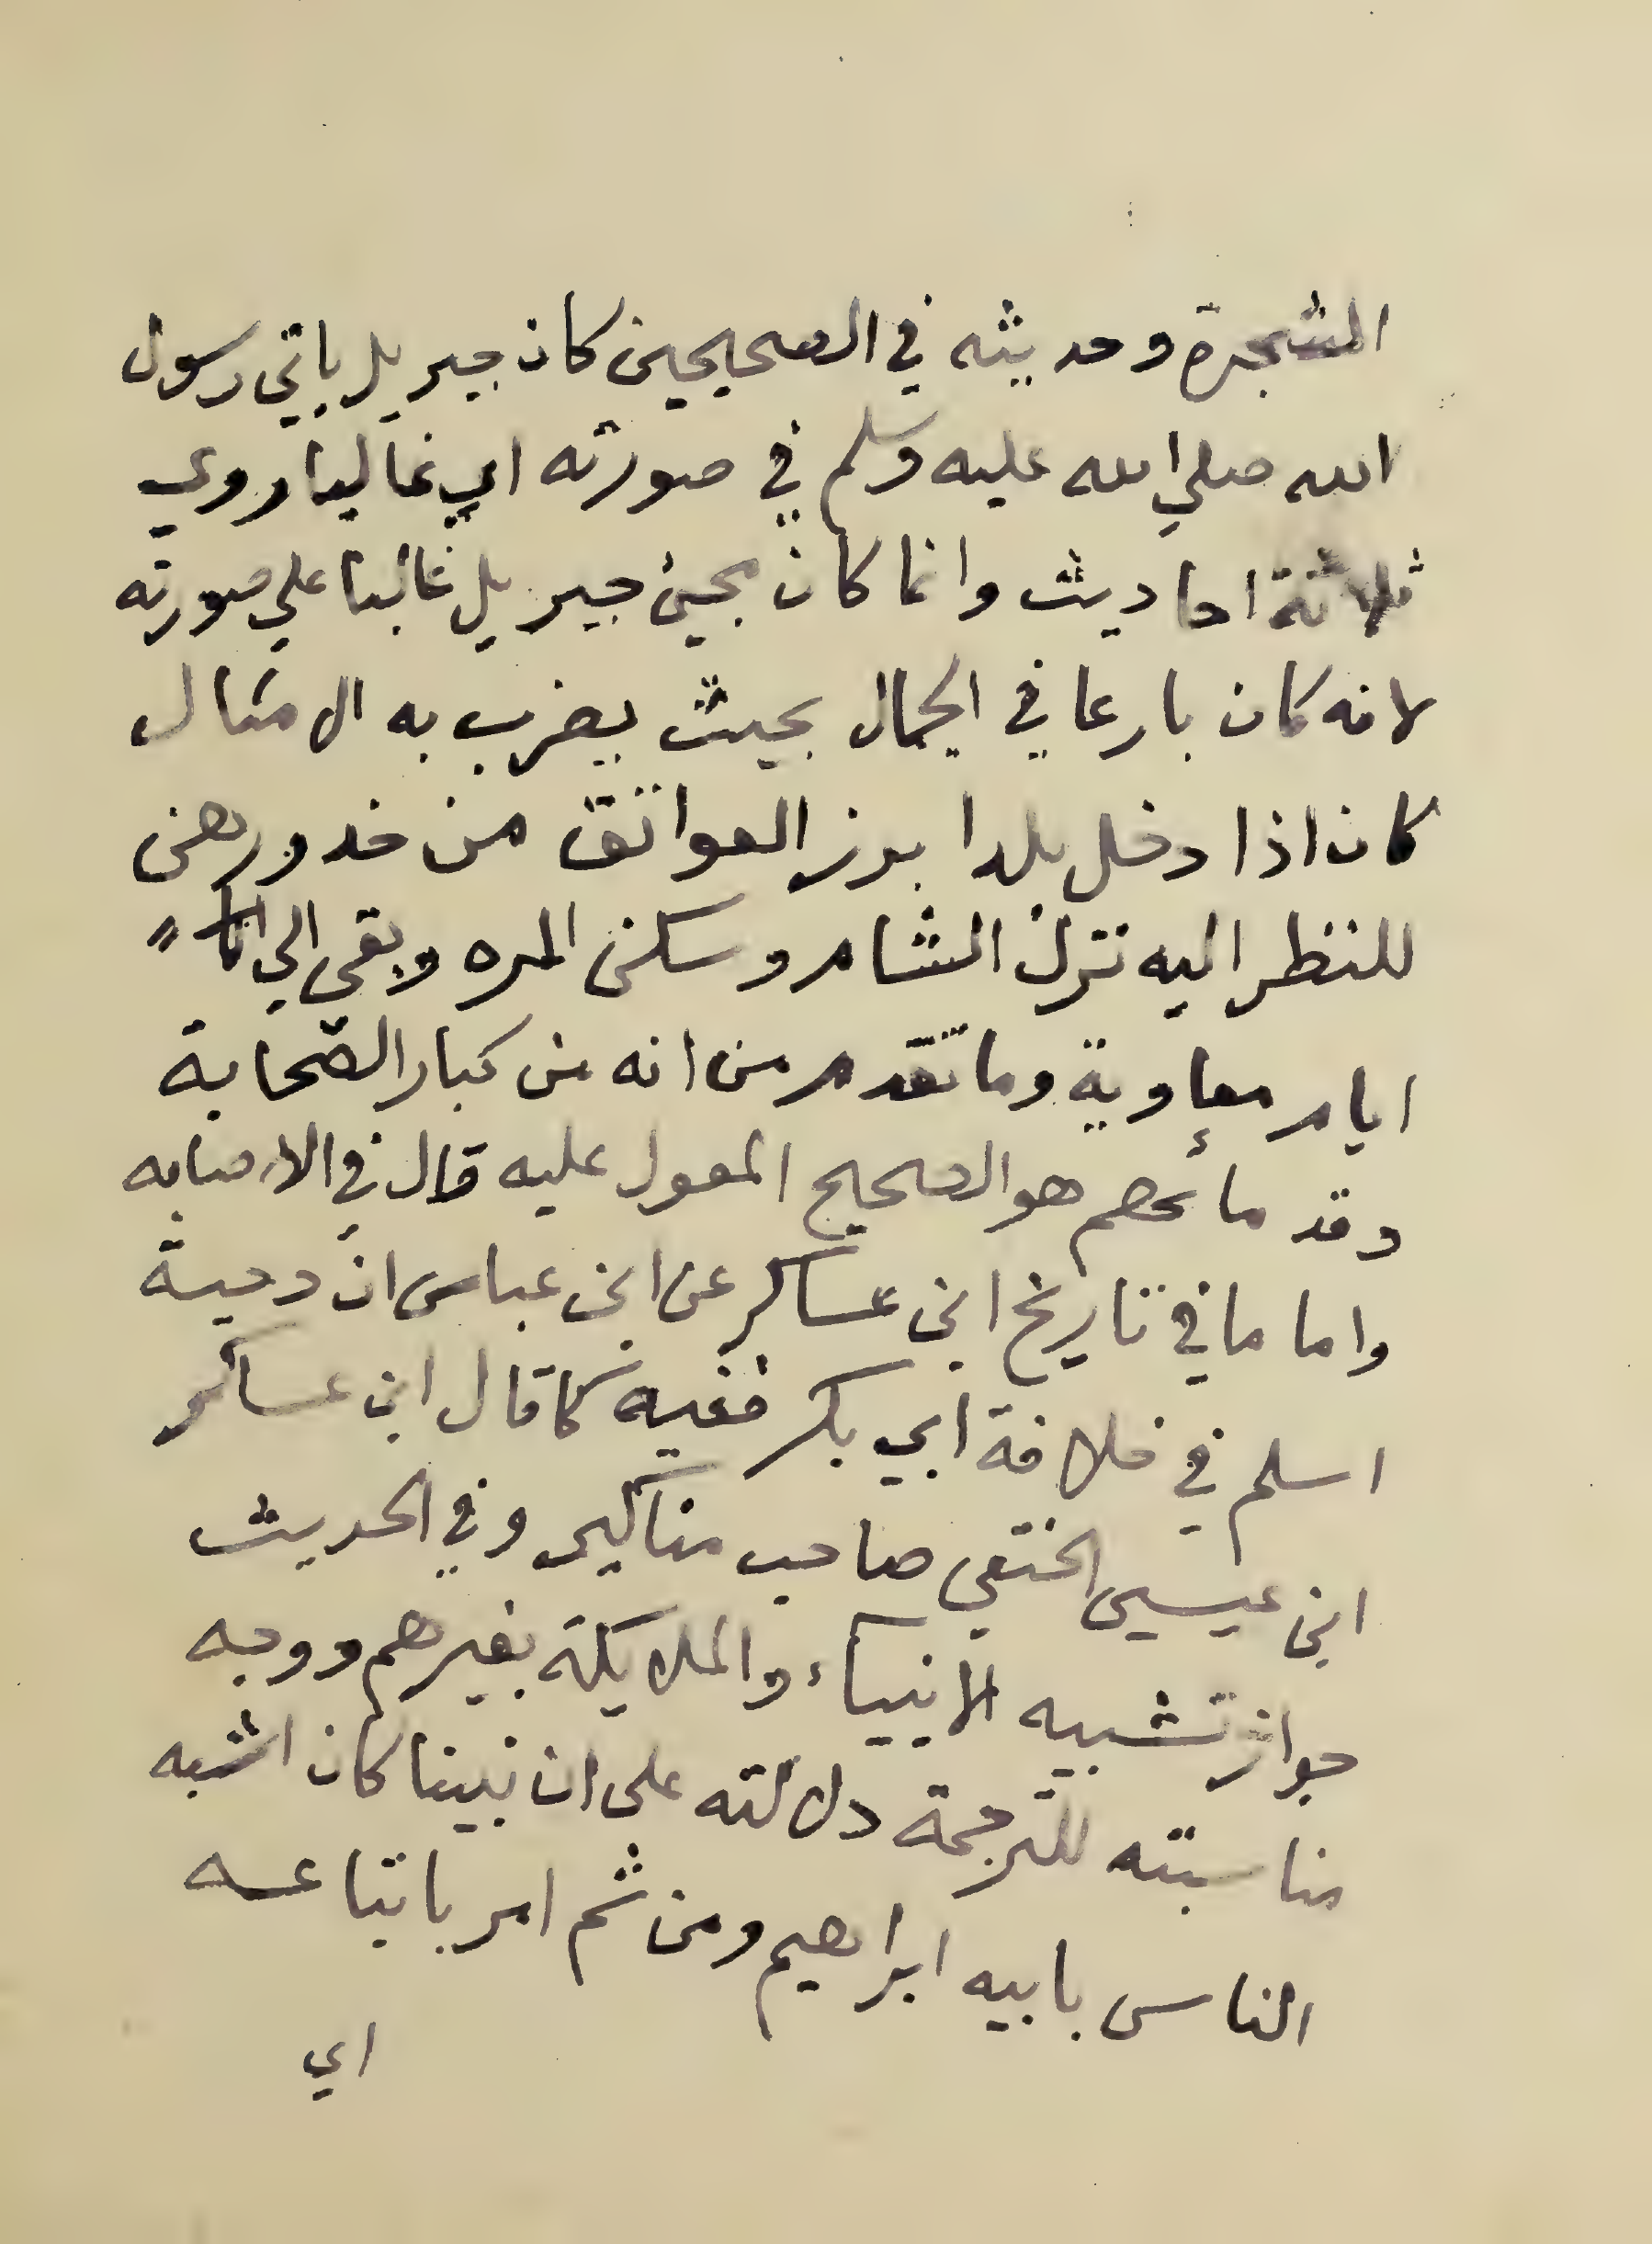 الشجرة وحديثه في الصحيحين كان جبريل ياتي رسول
الله صلي الله عليه وسلم في صورته اي غالبا روي
ثلاثة احاديث وانما كان مجيئ جبريل غالبا علي صورته
لانه كان بارعا في الجمال بحيث يضرب به الامثال
كان اذا دخل بلدا برز العواتق من خدورهن
للنظر اليه نزل الشام وسكن المزه وبقي الي
ايام معاوية وما تقدم من انه من كبار الصحابة
وقدمائهم هو الصحيح المعول عليه قال في الاصابه
واما ما في تاريخ ابن عساكر عن ابن عباس ان دحية
اسلم في خلافة ابي بكر ففيه كما قال ابن عساكر
ابن عيسى الحنفي صاحب مناكير وفي الحديث
جواز تشبيه الانبياء والملايكة بغيرهم ووجه
مناسبته للترجمة دلالته على ان نبينا كان اشبه
الناس بابيه ابراهيم ومن ثم امر باتباعه
اي